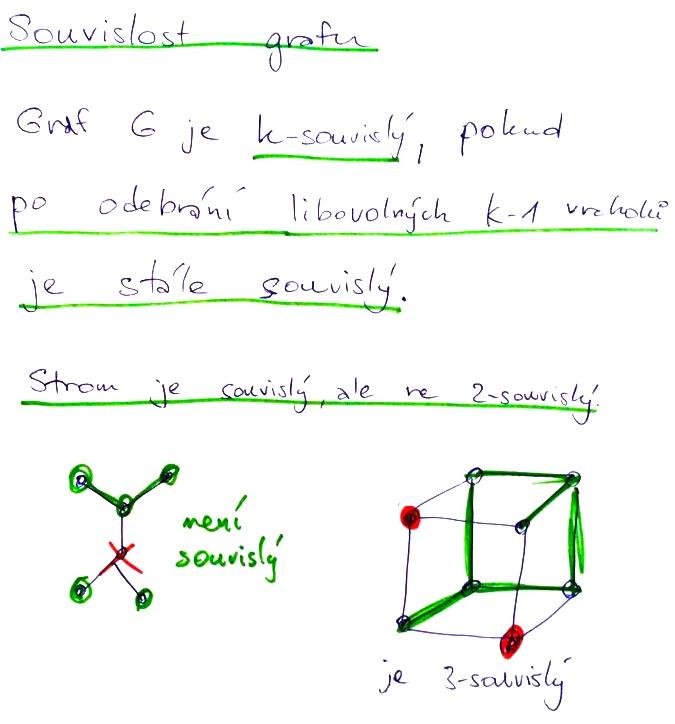 Souvislost grafu
Graf G je k-souvislý, pokud
po odebrání libovolných k-1 vrcholů
je stále souvislý.
Strom je souvislý, ale ne 2-souvislý.
není
souvislý
je 3-souvislý